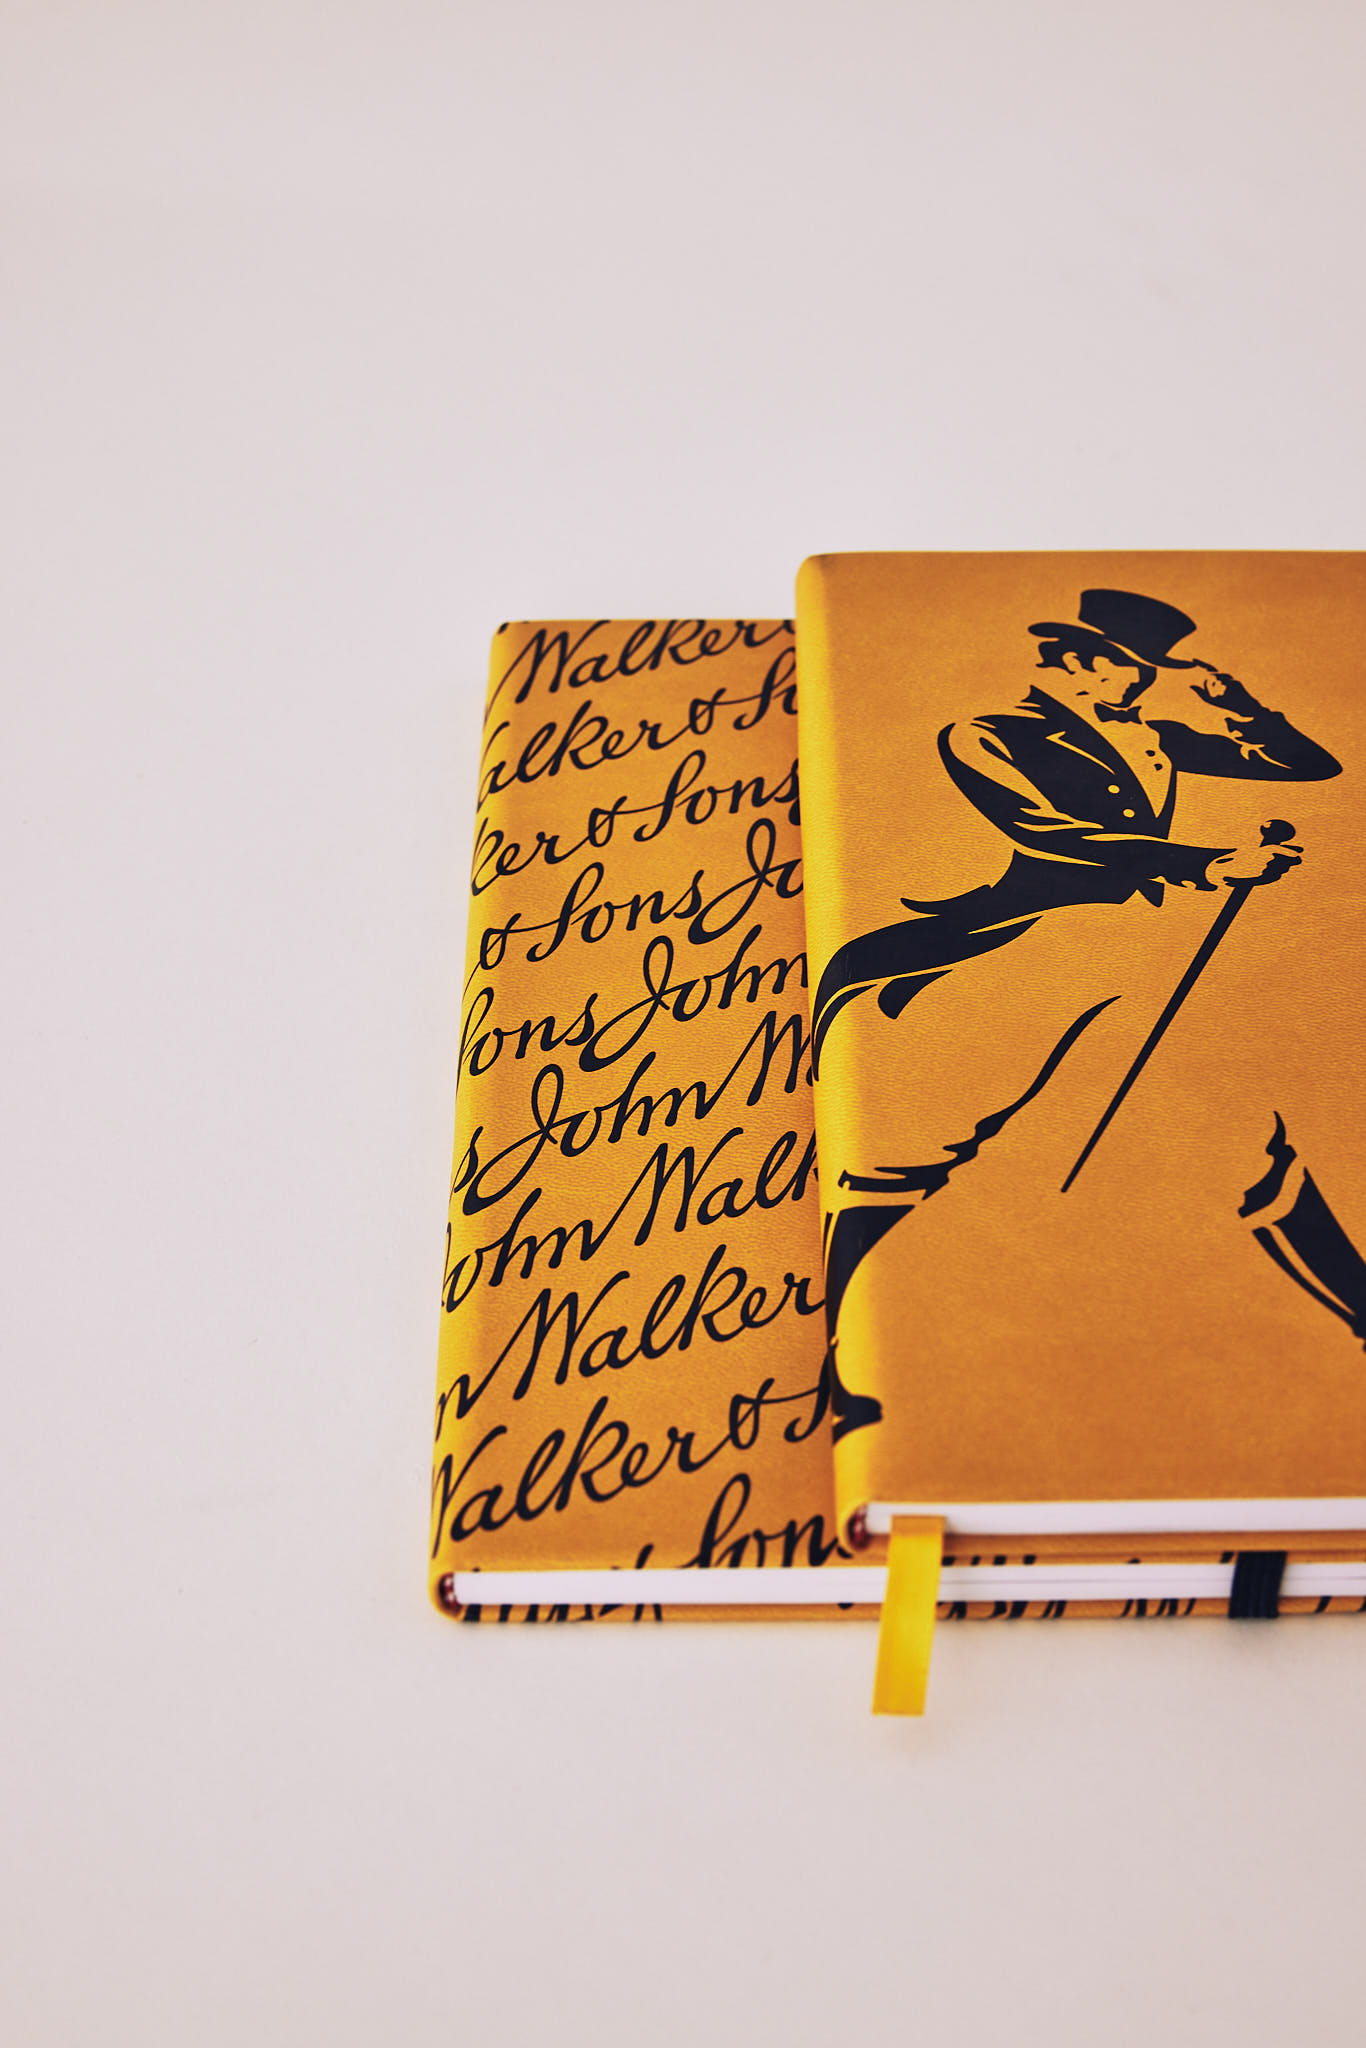 Walker
alker & So
ker & Sons
& Sons Jo
Sons John
s John W
John Walk
n Walker
Walker & S
Sons